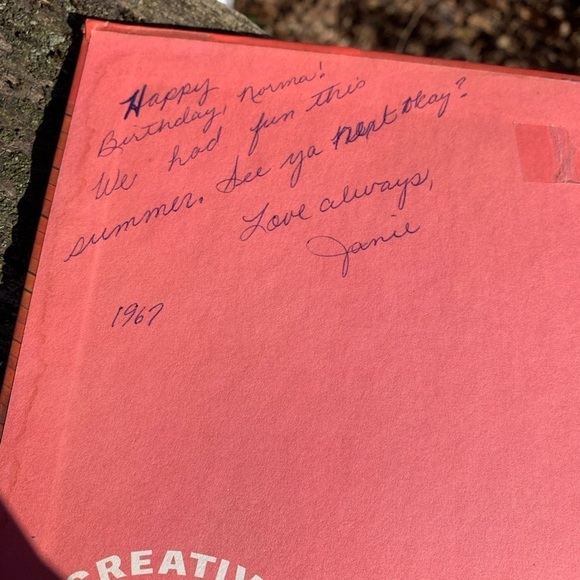 Happy
Birthday, Norma!
We had fun this
summer. See ya next okay?
Love always,
Janie
1967
CREATIV